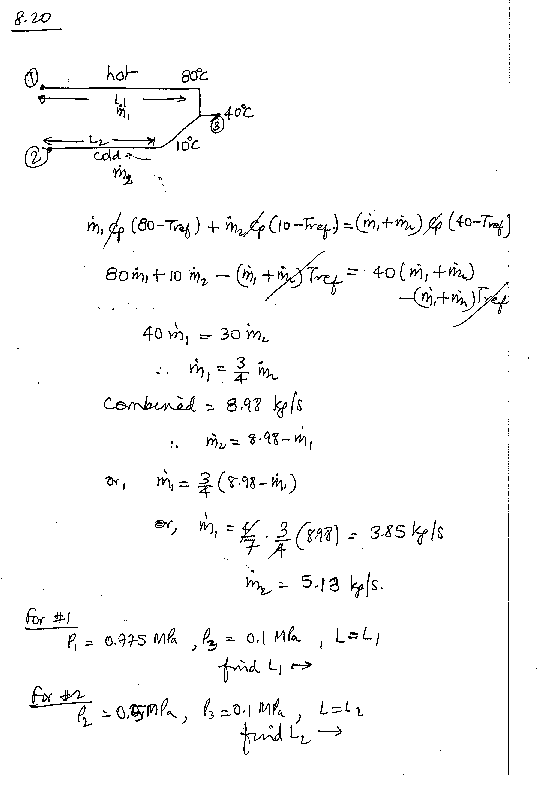 8.20
① hot 80°C
L₁
ṁ₁
40°C
③
L₂
10°C
② cold
ṁ₂
ṁ₁ Cp (80-Tref) + ṁ₂ Cp (10-Tref) = (ṁ₁+ṁ₂) Cp (40-Tref)
80ṁ₁ + 10 ṁ₂ - (ṁ₁+ṁ₂) Tref = 40(ṁ₁+ṁ₂)
-(ṁ₁+ṁ₂)Tref
40 ṁ₁ = 30 ṁ₂
∴ ṁ₁ = 3/4 ṁ₂
Combined = 8.98 kg/s
∴ ṁ₂ = 8.98-ṁ₁
or, ṁ₁ = 3/4 (8.98-ṁ₁)
or, ṁ₁ = 4/7 · 3/4 (8.98) = 3.85 kg/s
ṁ₂ = 5.13 kg/s.
for #1
P₁ = 0.975 MPa, P₃ = 0.1 MPa, L=L₁
find L₁ →
for #2
P₂ = MPa, P₃=0.1 MPa, L=L₂
find L₂ →